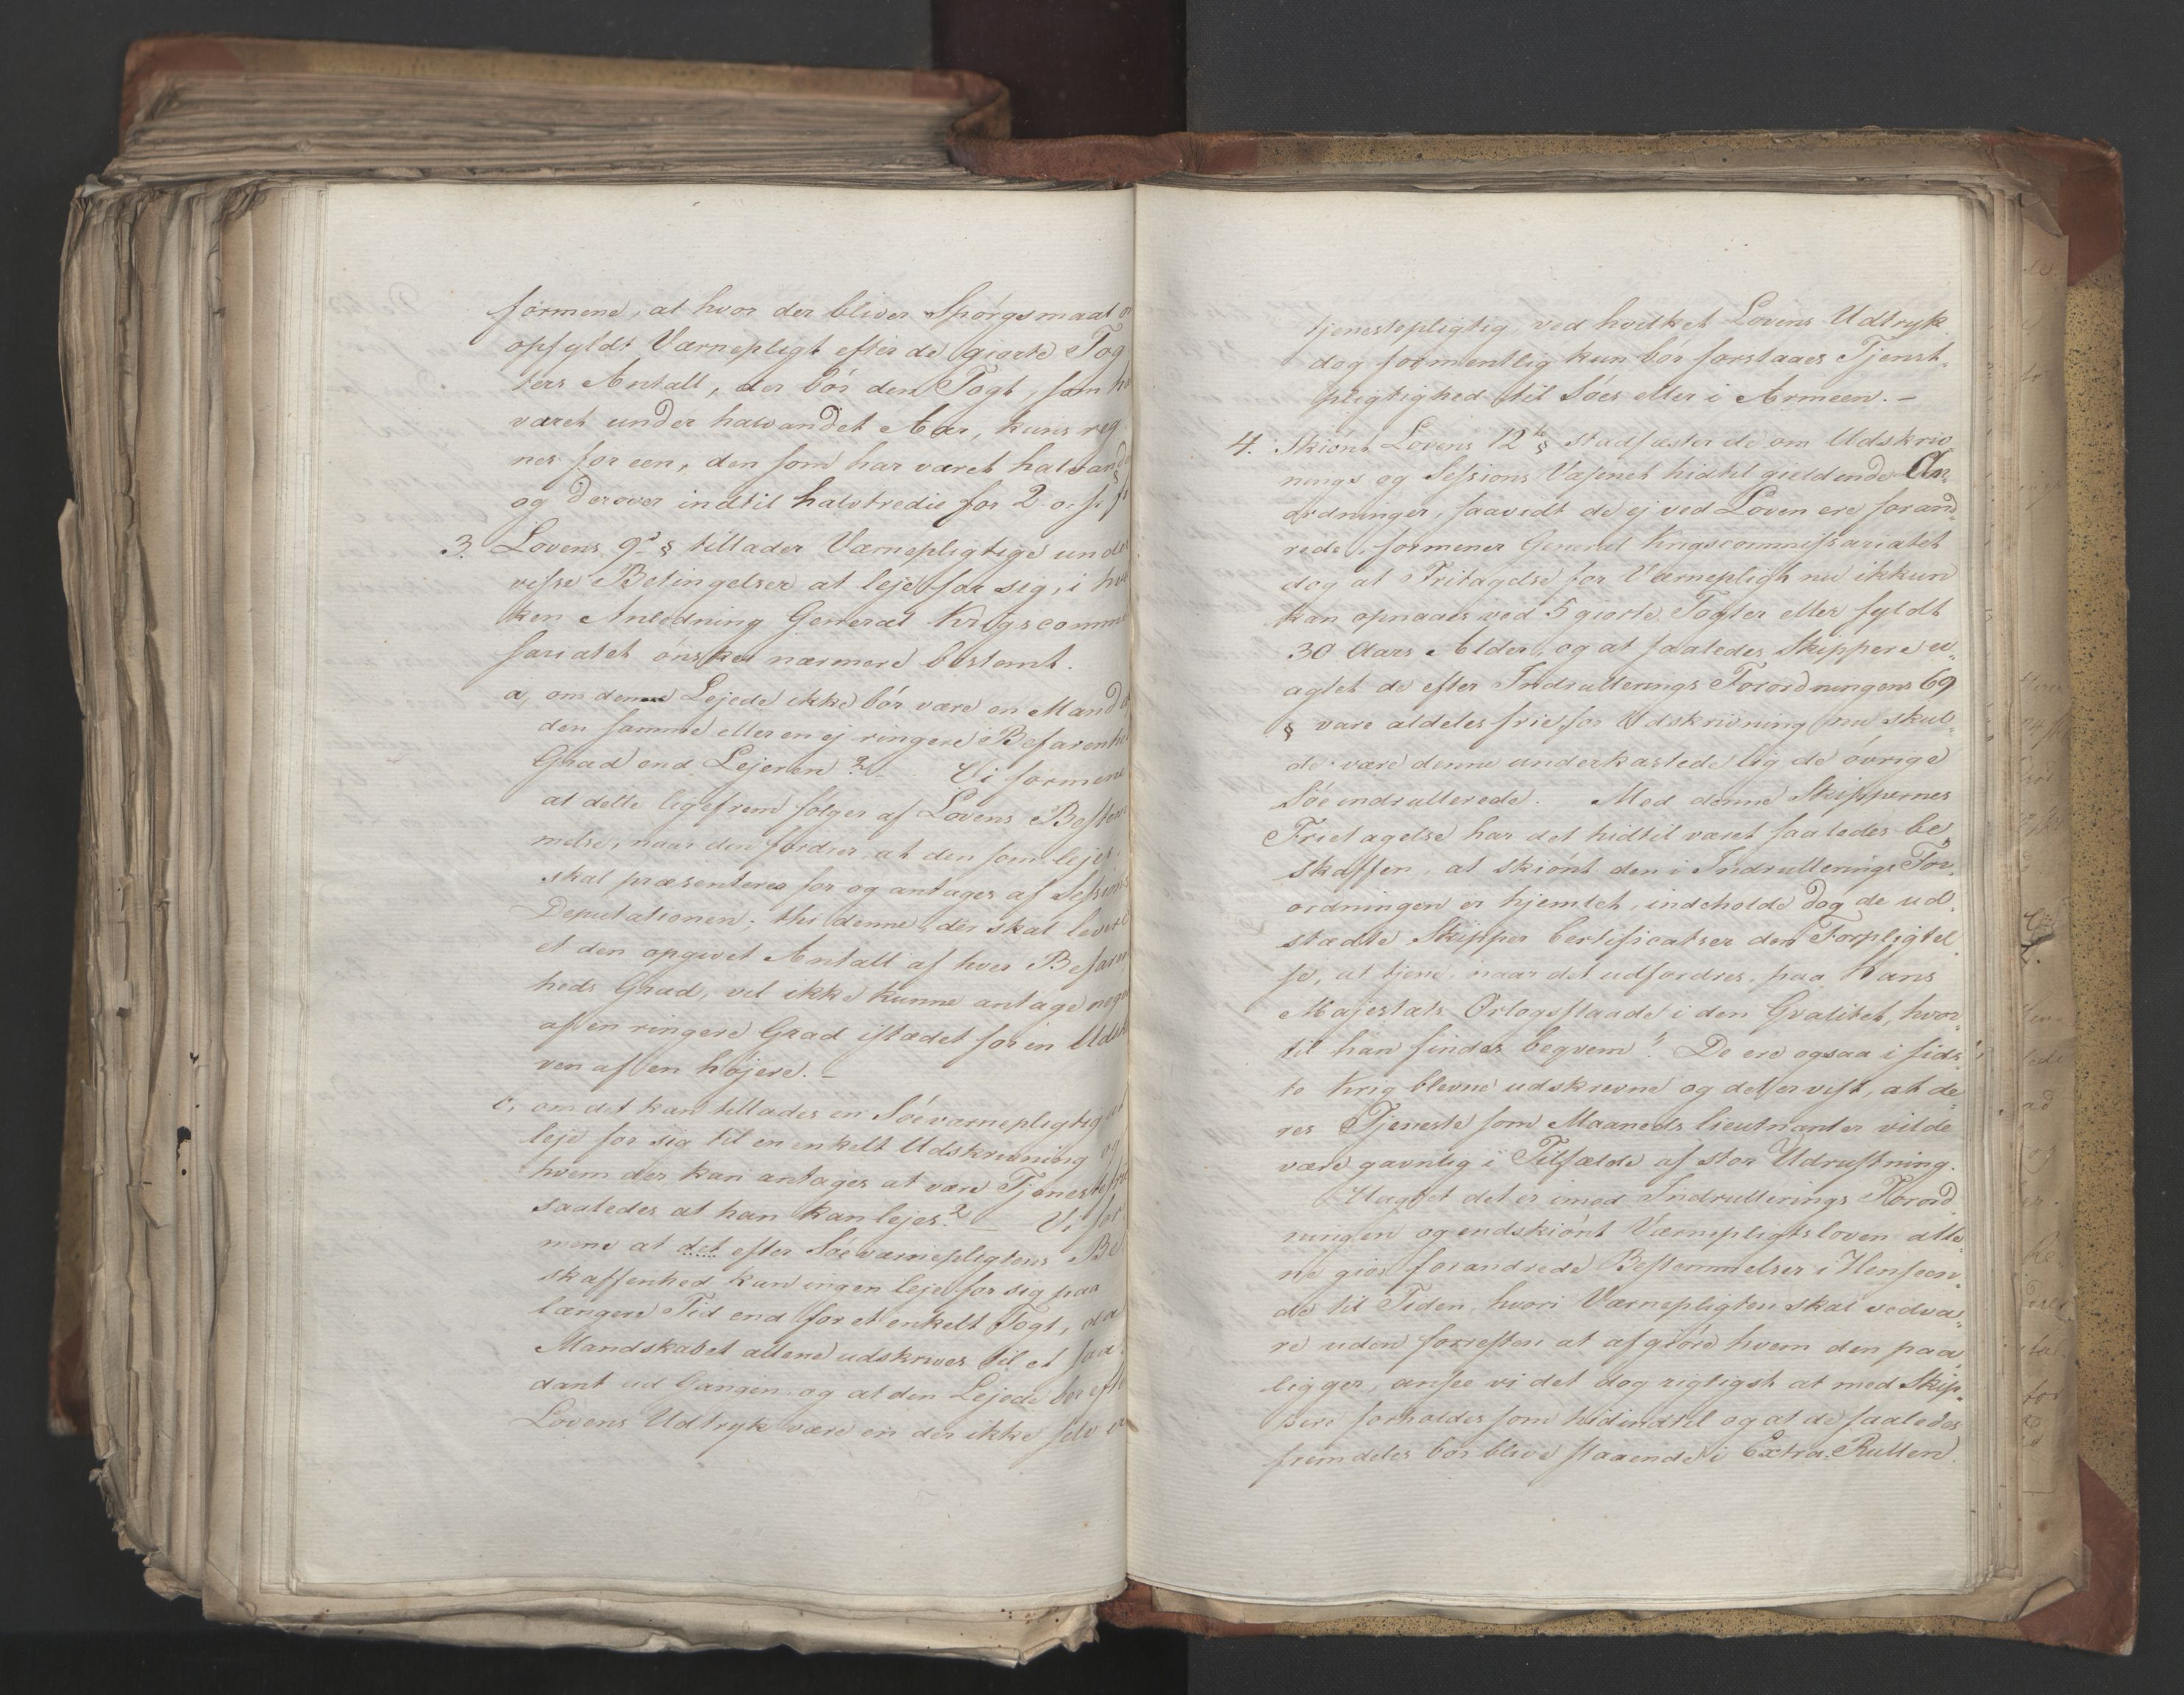 formene, at hvor der bliver Spørgsmaal o
opfyldt Værnepligt efter de giorte Tog
ters Antall, der bør den Togt, som ha
været under halvandet Aar, kuns reg
nes for een, den som har været halvande
og derover indtil halvtredie for 2 o. s. f
3. Lovens 9de § tillader Værnepligtige unde
visse Betingelser at leje for sig, i hvil
ken Anledning General Krigscommi
sariatet ønsker nærmere bestemt.
a, om denne Lejede ikke bør være en Mand a
den samme eller en ej ringere Befarenhe
Grad end Lejeren? Vi formene
at dette ligefrem følger af Lovens Bestem
melse, naar den fordrer, at den som lejes
skal præsenteres for og antages af Sessions
Deputationen; thi denne, der skal levere
et den opgivet Antall af hver Befaren
heds Grad, vil ikke kunne antage noge
af en ringere Grad istædet for en Udskr
ven af en højere. —
c, om det kan tillades en Søeværnepligtig at
leje for sig til en enkelt Udskrivning og
hvem der kan antages at være Tjenestefri
saaledes at han kan lejes? — Vi for
mene at det efter Søeværnepligtens Be
skaffenhed kan ingen leje for sig paa
længere Tid end for et enkelt Togt, da
Mandskabet allene udskrives til et saa
dant ad Gangen og at den Lejede bør efte
Lovens Udtryk være en der ikke selv er
tjenestepligtig, ved hvilket Lovens Udtryk
dog formentlig kun bør forstaaes Tjenst-
pligtighed til Søes eller i Armeen. —
4. Skiønt Lovens 12te § stadfæster de om Udskriv
nings og Sessions Væsnet hidtil gieldende An-
ordninger, saavidt de ej ved Loven ere forand
rede, formener General Krigscommissariatet
dog at Fritagelse for Værnepligt nu ikkun
kan opnaaes ved 5 giorte Togter eller fyldt
30 Aars Alder, og at saaledes Skippere u-
agtet de efter Indrullerings Forordningens 69
§ vare aldeles frie for Udskrivning nu skul-
de være denne underkastede lig de øvrige
Søeindrullerede. Med denne Skippernes
Frietagelse har det hidtil været saaledes be-
skaffen, at skiønt den i Indrullerings For-
ordningen er hjemlet, indeholde dog de ud-
stædte Skipper Certificatser den Forpligtel
se, at tjene, naar det udfordres, paa Hans
Majestæts Orlogsflaade i den Qvalitet, hvor-
til han findes beqvem"! De ere ogsaa i sid-
te Krig blevne udskrevne og det er vist, at de-
res Tjeneste som Maaneds lieutnanter vilde
være gavnlig i Tilfælde af stor Udrustning.
Uagtet det er imod Indrullerings Forord
ningen og endskiønt Værnepligtsloven alle
ne giør forandrede Bestemmelser i Henseen-
de til Tiden, hvori Værnepligten skal vedva-
re uden forresten at afgiøre hvem den paa
ligger, ansee vi det dog rigtigst at med Skip-
pere forholdes som hidindtil og at de saaledes
fremdeles bør blive staaende i Extra-Rullen.